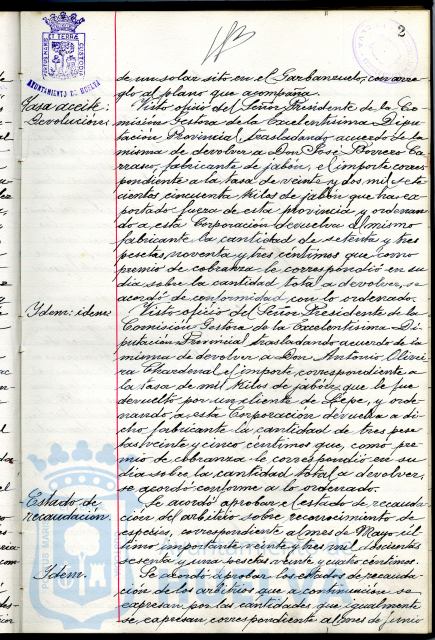 2
PORTUS MARIS ET TERRAE CUSTODIA
AYUNTAMIENTO DE HUELVA
de un solar sito en el Garbanzuelo, con arre-
glo al plano que acompaña.
Tasa aceite:
Devolución:
Visto oficio del Señor Presidente de la Co-
misión Gestora de la Excelentísima Dipu-
tación Provincial, trasladando acuerdo de la
misma de devolver a Don José Borrero Ca-
rrasco, fabricante de jabón, el importe corres-
pondiente a la tasa de veinte y dos mil sete-
cientos cincuenta kilos de jabón que ha ex-
portado fuera de esta provincia y ordenan-
do a esta Corporación devuelva al mismo
fabricante la cantidad de setenta y tres
pesetas, noventa y tres céntimos que como
premio de cobranza le correspondió en su
día sobre la cantidad total a devolver, se
acordó de conformidad con lo ordenado.
Ydem: idem:
Visto oficio del Señor Presidente de la
Comisión Gestora de la Excelentísima Di-
putación Provincial trasladando acuerdo de la
misma de devolver a Don Antonio Olivei-
ra Chardenal el importe, correspondiente a
la tasa de mil kilos de jabón, que le fue
devuelto por un cliente de Lepe, y orde-
nando, a esta Corporación devuelva a di-
cho fabricante la cantidad de tres pese-
tas veinte y cinco céntimos que, como pre-
mio de cobranza le correspondió en su
día sobre la cantidad total a devolver,
se acordó conforme a lo ordenado.
Estado de
recaudación.
Se acordó aprobar el estado de recauda-
ción del arbitrio sobre reconocimiento de
especies, correspondiente al mes de Mayo úl-
timo importante veinte y tres mil doscientas
sesenta y una pesetas veinte y cuatro céntimos.
Ydem.
Se acordó aprobar los estados de recauda-
ción de los arbitrios que a continuación se
expresan por las cantidades que igualmente
se expresan, correspondiente al mes de junio